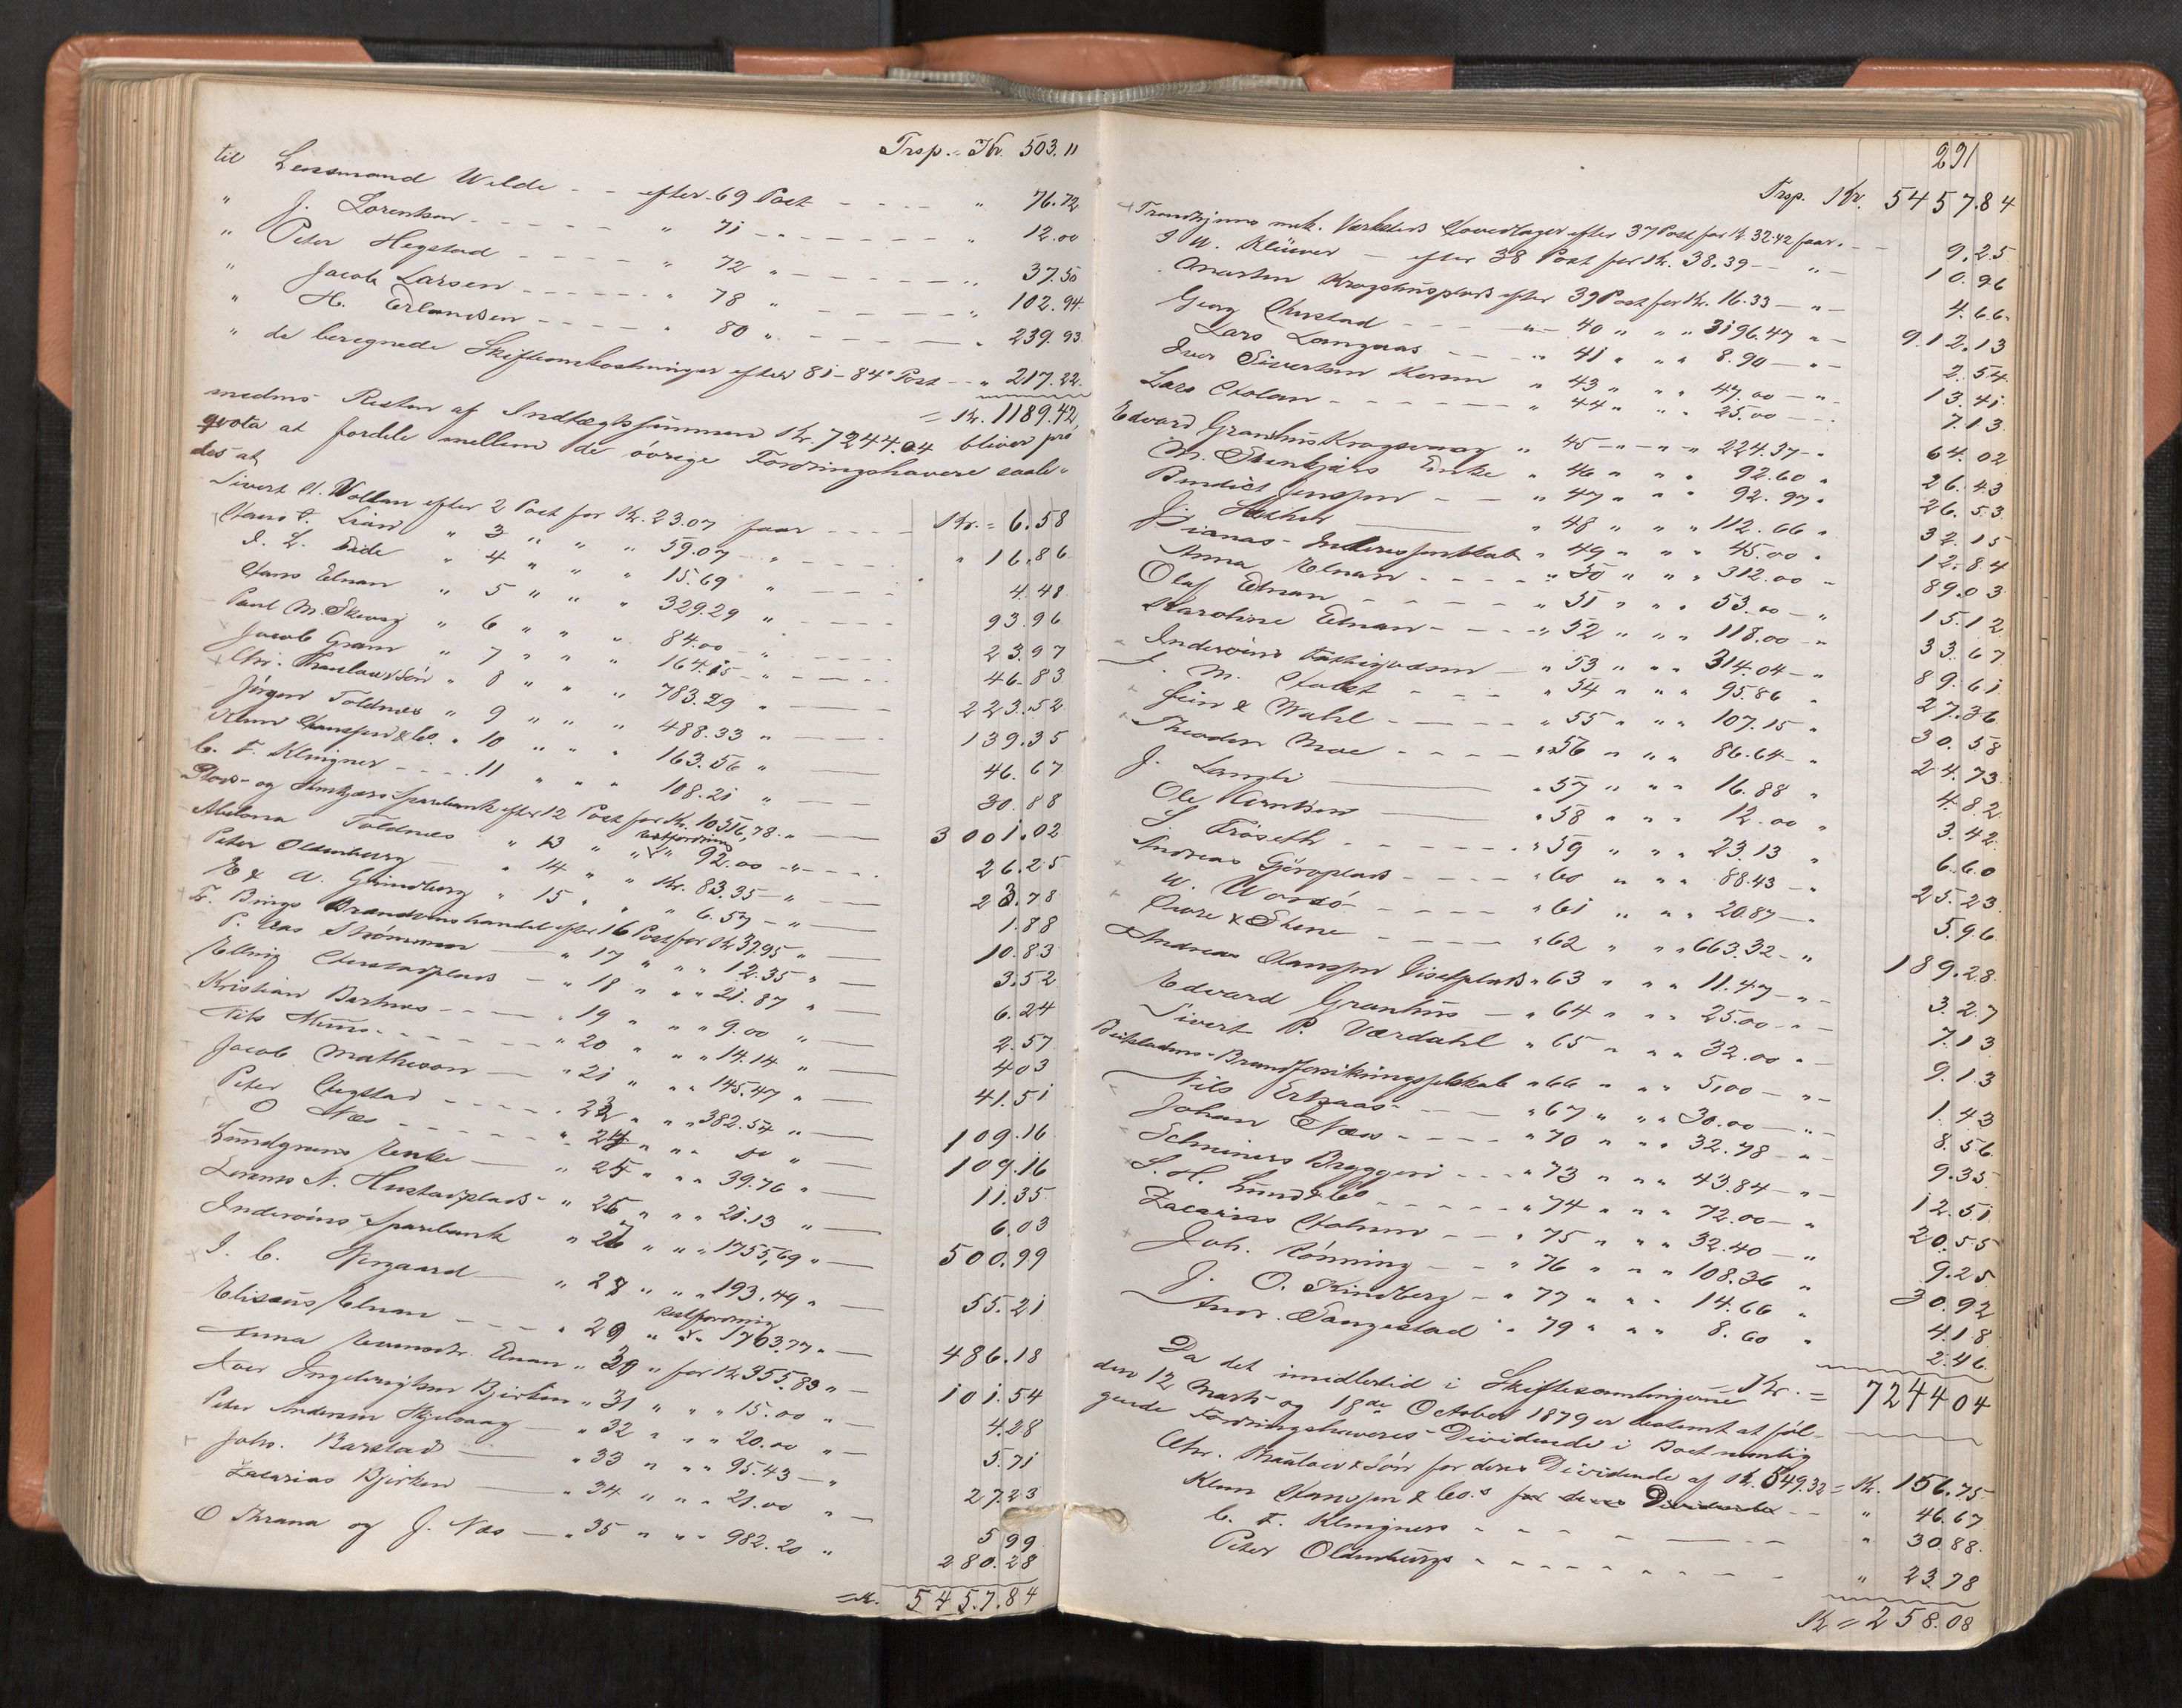 Trsp. Kr. 503.11
til Lensmand Welde - - efter 69 Post - - - - " 76.72
" J. Lorentsen - - - - - " 71 - - - - - - - " 12.00
" Peter Hegstad - - - - " 72 " - - - - - " 37.50
" Jacob Larsen - - - - - " 78 " - - - - - " 102.94
" H. Erlandsen - - - - " 80 " - - - - - " 239.93
" de beregnede Skifteomkostninger efter 81-84 Post - - " 217.22
= Kr. 1189.42
medens Resten af Indtægtssummen Kr. 7244.04 bliver pro
qvota at fordele mellem de øvrige Fordringshavere saale-
des at
Sivert H. Wollan efter 2 Post for Kr. 23.07 faar - - - - Kr. = 6.58
Hans P. Lian " 3 " " " 59.07 " - - - - " 16.86
I. L. Eide " 4 " " " 15.69 " - - - 4.48
Hans Elnan " 5 " " " 329.29 " - - - - 93.96
Paul M. Skevig " 6 " " " 84.00 " - - - - 23.97
Jacob Gram " 7 " " " 164.15 " - - - - 46.83
Chr. Thaulow & Søn " 8 " " " 783.29 " 223.52
Jørgen Toldnes " 9 " " " 488.33 " 139.35
Klem Hansen & Co. " 10 " " " 163.56 " 46.67
C. F. Klingner - - - - 11 " " " 108.21 " 30.88
Stods- og Stenkjærs Sparebank efter 12 Post for Kr. 10516,78 " 3001.02
Toldnes " 13 " Restfordring " 92.00 " - - - - 26.25
Peter Oldenburg " 14 " " Kr. 83.35 " 23.78
E & A. Grindberg " 15 " " " 6.57 " 1.88
Fr. Brings Brændevinshandel efter 16 Post for Kr 37.95 " 10.83
P. Aas Strømmen " 17 " " " 12.35 " 3.52
Elling Hustadplads - " 18 " " " 21.87 " 6.24
Kristian Bartnes - - - - " 19 " " " 9.00 " 2.57
Nils Muus - - - - - - " 20 " " " 14.14 " 4.03
Jacob Mathieson " 21 " " " 145.47 " 41.51
Peter Hegstad - - - - " 23 " " " 382.54 " 109.16
O Næs - - - - - " 24 " " " " 109.16
Lundgrens Enke " 25 " " " 39.76 " 11.35
Lorents N. Hustadplads " 26 " " " 21.13 " 6.03
Inderøens Sparebank " 27 " " " 1755,69 " 500.99
I. C. Nergaard " 28 " " " 193.49 " 55.21
Elisæus Elnan - - - - " 29 " Restfordring " 1703.77 " 486.18
Anna Elnan " 30 " for Kr 355.83 " 101.54
Iver Ingebrigtsen Bjerken " 31 " " " 15.00 " 4.28
Peter Andersen Skjelvaag " 32 " " " 20.00 " 5.71
Johs. Barstad " 33 " " " 95.43 " 27.23
Zakarias Bjerken " 34 " " " 21.00 " 5.99
O Thrana og J. Næs " 35 " " " 982.20 " 280.28
= Kr. 5457.84
291
Trsp. Kr. 5457.84
Trondhjems mek. Værksteds Hovedlager efter 37 Post for Kr. 32.42 faar 9.25
I W. Klüwer - efter 38 Post for Kr. 38.39 " 10.96
Krogshusplads efter 39 Post for Kr. 16.33 " 4.66
Georg Hustad - - - - " 40 " " " 3196.47 " 912.13
Lars Langaas - - - - " 41 " " " 8.90 " 2.54
Iver Sivertsen " 43 " " " 47.00 " 13.41
Lars Holan - - - - - " 44 " " " 25.00 7.13
Edvard Granhus Krogsvaag " 45 " " " 224.37 " 64.02
M. Stenkjærs Enke " 46 " " " 92.60 " 26.43
Benedict Jensen - - " 47 " " " 92.97 " 26.53
J. " 48 " " " 112.66 " 32.15
Dianas Interessentskab " 49 " " " 45.00 " 12.84
Anna Elnan - - - - " 50 " " " 312.00 " 89.03
Olaf Elnan - - - - - " 51 " " " 53.00 " 15.12
Karoline Elnan - - - " 52 " " " 118.00 " 33.67
Inderøens Fattigvæsen " 53 " " " 314.04 " 89.61
M. - - - - " 54 " " " 95.86 " 27.36
& Wahl - - - - - " 55 " " " 107.15 " 30.58
Theodor Moe - - - - " 56 " " " 86.64 " 24.73
J. Langli " 57 " " " 16.88 " 4.82
Ole Berntsen " 58 " " " 12.00 " 3.42
Frøseth - - - - - " 59 " " " 23.13 " 6.60
Andreas Gjørvplads - - - " 60 " " " 88.43 " 25.23
- - - - " 61 " " " 20.87 " 5.96
Huse & Skene - - - - " 62 " " " 663.32 " 189.28
Andreas Hansen " 63 " " " 11.47 " 3.27
Edvard Granhus " 64 " " " 25.00 " 7.13
Sivert P. Værdahl " 65 " " " 32.00 " 9.13
Beitstadens Brandforsikringsselskab " 66 " " " 5,00 " 1.43
Nils - - - " 67 " " " 30.00 " 8.56
Johan Næss - - - - " 70 " " " 32.78 " 9.35
Schreiners Bryggeri - - - " 73 " " " 43.84 " 12.51
S. H. Lund & Co - - - - " 74 " " " 72.00 " 20.55
Zacarias - - - " 75 " " " 32.40 " 9.25
Joh. Rønning - - " 76 " " " 108.36 " 30.92
J. O. Kindberg - " 77 " " " 14.66 " 4.18
Andr. Tangestad " 79 " " " 8.60 " 2.46
Kr. = 7244 04
Da det imidlertid i Skiftesamlingerne
den 12 Marts og 18de October 1879 er bestemt at føl-
gende Fordringshaveres Dividende i Boet nemlig
Chr. Thaulow & Søn for deres Dividende af Kr. 549.32 = Kr. 156.75
Klem Hansen & Co.s for deres Dividende - - " 46.67
C. F. Klingners - - - - - " 30.88
Peter Oldenburgs - - - - - - " 23.78
Kr = 258.08